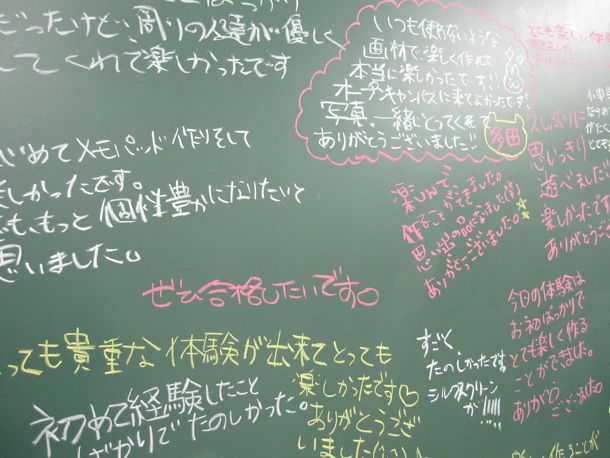 だったけど、周りの人達が優しく
してくれて楽しかったです
いつも使わないような
画材で楽しく作れて
本当に楽しかったです!!
オープキャンパスに来てよかったです!
写真一緒にとってくれて
ありがとうございました!!
多田
とても楽しい体験
久しぶりに
思いっきり
遊べました
楽しかったです
ありがとうござ
じめてメモパッド作りをして
しかったです。
もっと個性豊かになりたいと
思いました。
楽しんで
作ることができました。
思い出の品になりました!
ありがとうございました。
ぜひ合格したいです。
今日の体験は
お初ばっかりで
とても楽しく作る
ことができました。
ありがとう
ございました。
っても貴重な体験が出来てとっても
楽しかったです♡
ありがとうござ
いました
すごく
たのしかったです
シルクスクリーン
が!!!!!
初めて経験したこと
ばかりでたのしかった。